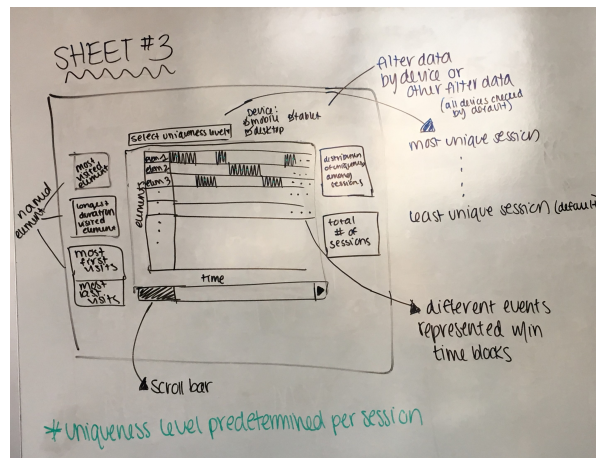 SHEET #3
filter data
by device or
other filter data
(all devices checked
by default)
Device:
mobile tablet
desktop
select uniqueness level
most unique session
least unique session (default)
named
element
most
visited
element
longest
duration
visited
element
most
first
visits
most
last
visits
elements
elem 1
elem 2
elem 3
time
distribution
of uniqueness
among
sessions
total
# of
sessions
different events
represented w/in
time blocks
scroll bar
* uniqueness level predetermined per session